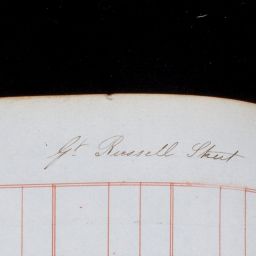 Gt Russell Street